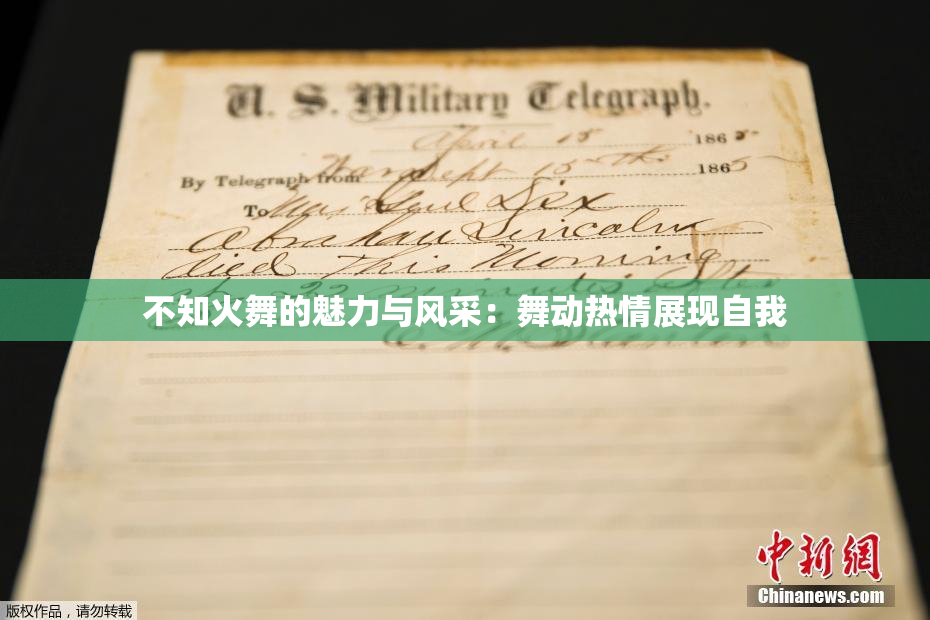 U. S. Military Telegraph.
April 15 1865
By Telegraph from War Dept 15th 1865
To Maj Genl Dix
Abraham Lincoln
died This Morning
at 22 minutes after
不知火舞的魅力与风采：舞动热情展现自我
E. M. Stanton
中新网
Chinanews.com
版权作品，请勿转载